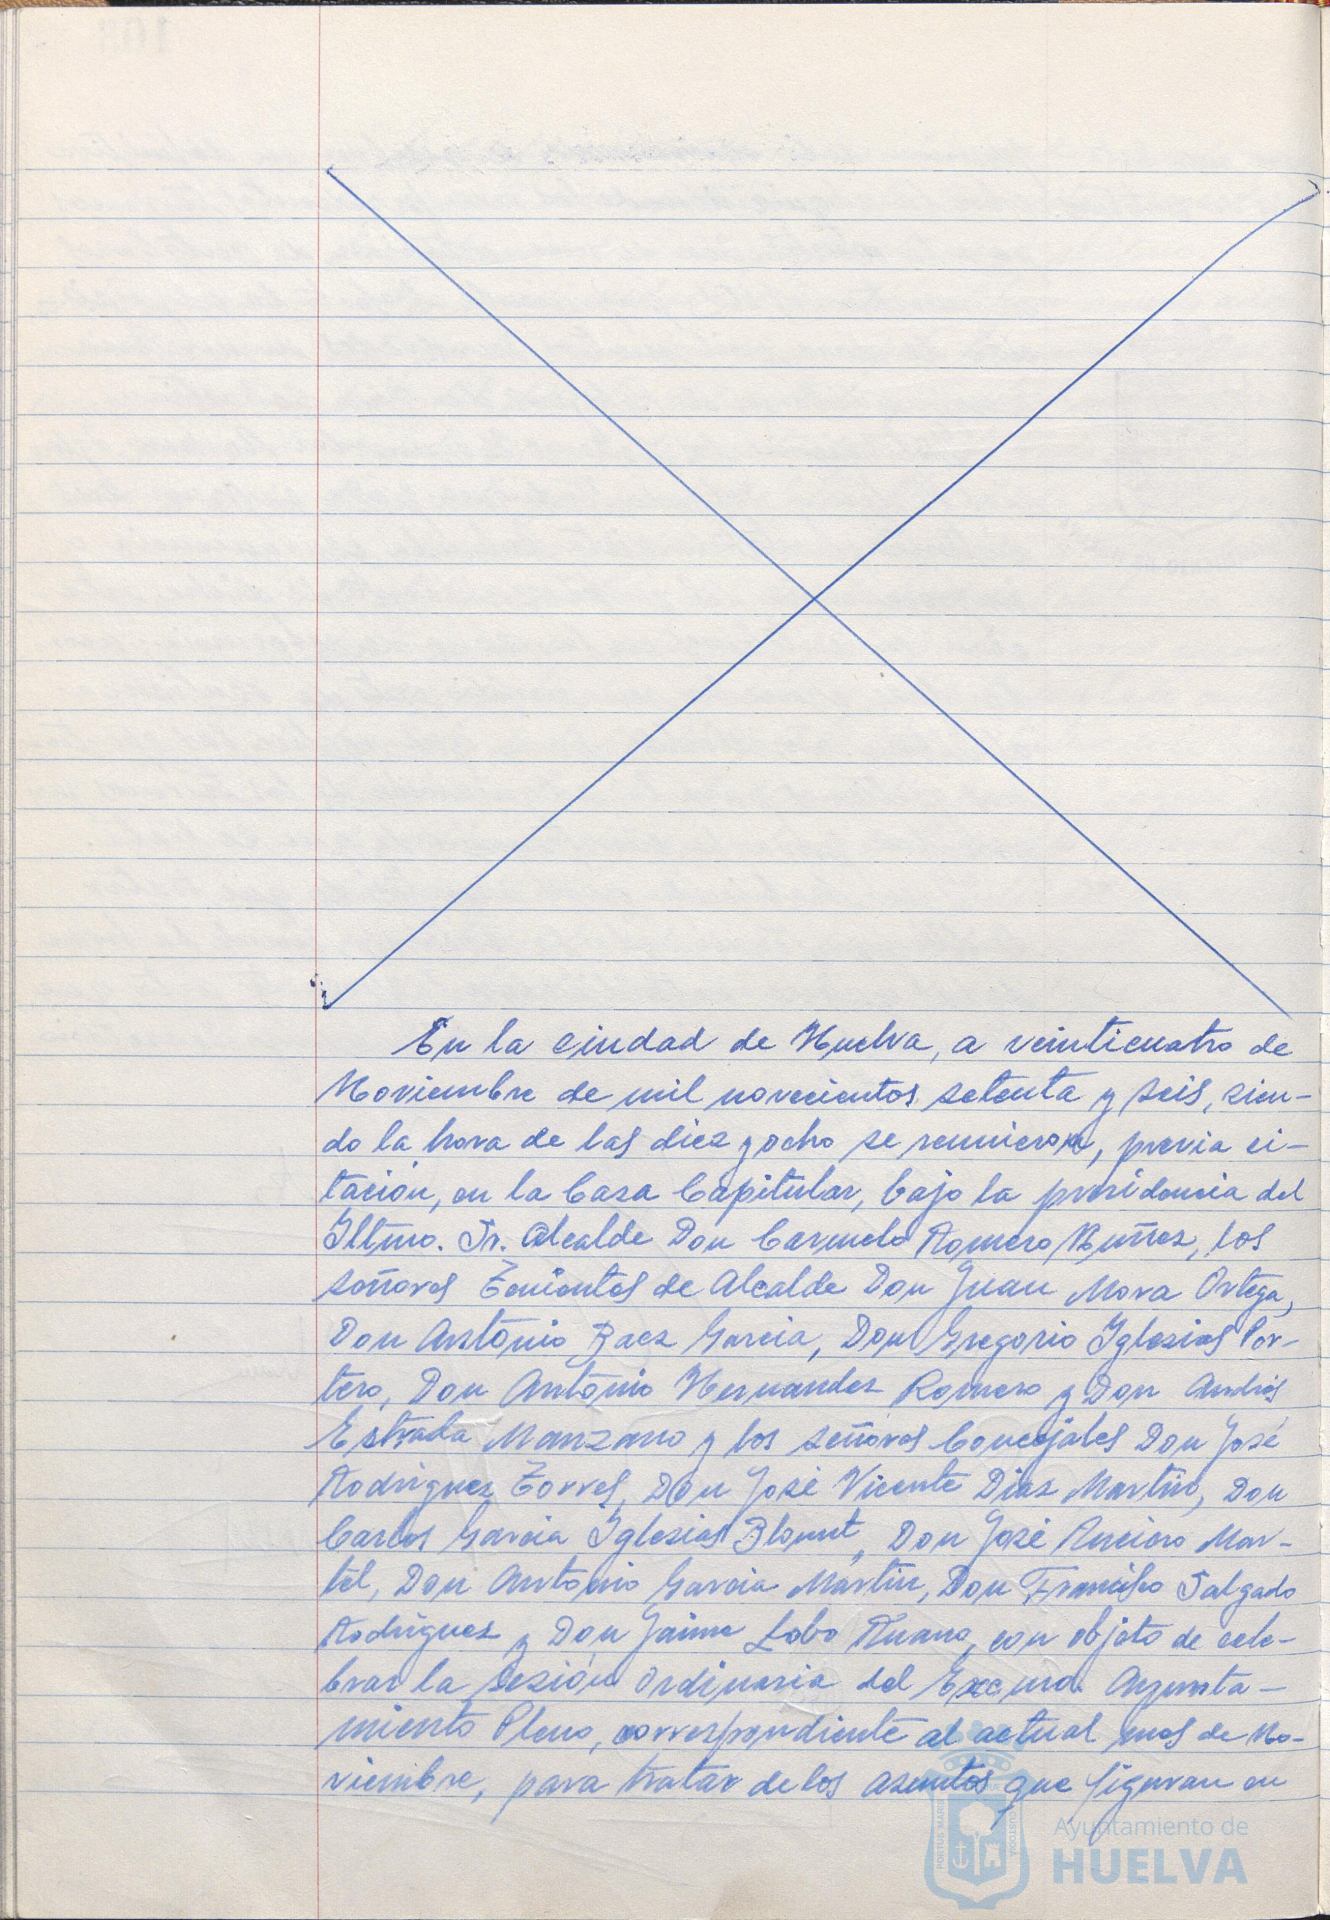 En la ciudad de Huelva, a veinticuatro de
Noviembre de mil novecientos setenta y seis, sien-
do la hora de las diez y ocho se reunieron, previa ci-
tación, en la Casa Capitular, bajo la presidencia del
Iltmo. Sr. Alcalde Don Carmelo Romero Nuñez, los
señores Tenientes de Alcalde Don Juan Mora Ortega,
Don Antonio Baez Garcia, Don Gregorio Iglesias Por-
tero, Don Antonio Hernandez Romero y Don Andrés
Estrada Manzano y los señores Concejales Don José
Rodriguez Torres, Don José Vicente Diaz Martin, Don
Carlos Garcia Iglesias Blount, Don José Anciero Mar-
tel, Don Antonio Garcia Martin, Don Francisco Salgado
Rodriguez y Don Jaime Lobo Ruano, con objeto de cele-
brar la sesión ordinaria del Excmo. Ayunta-
miento Pleno, correspondiente al actual mes de No-
viembre, para tratar de los asuntos que figuran en
PORTUS MARIS CUSTODIA
Ayuntamiento de
HUELVA